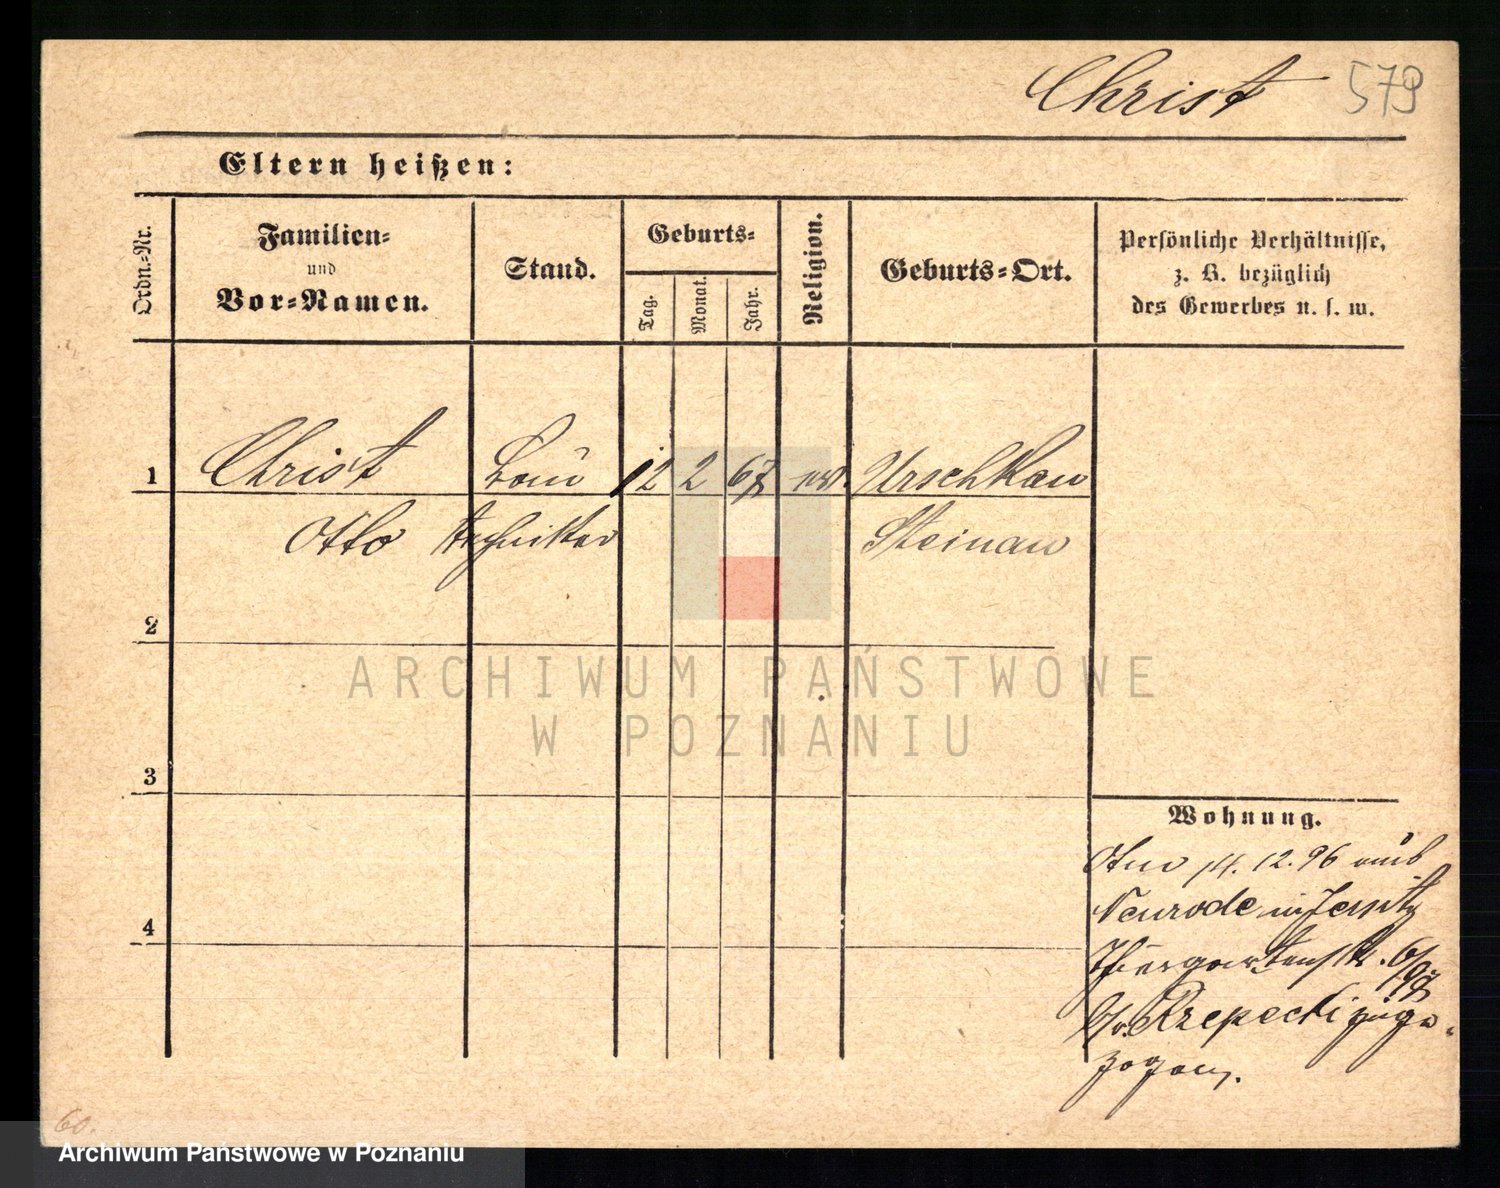 Christ 579
Eltern heißen:
Ordn.-Nr.
Familien-
und
Vor-Namen.
Stand.
Geburts-
Tag.
Monat.
Jahr.
Religion.
Geburts-Ort.
Persönliche Verhältnisse,
z. B. bezüglich
des Gewerbes u. s. w.
1 Christ Bau 12 2 67 ev. Urschkau
Otto techniker Steinau
2
ARCHIWUM PAŃSTWOWE
W POZNANIU
3
Wohnung.
Am 14.12.96 aus
Neurode in Jersitz
4
Thiergartenstr. 6
b/v. Rzepecki zuge-
zogen.
60.
Archiwum Państwowe w Poznaniu